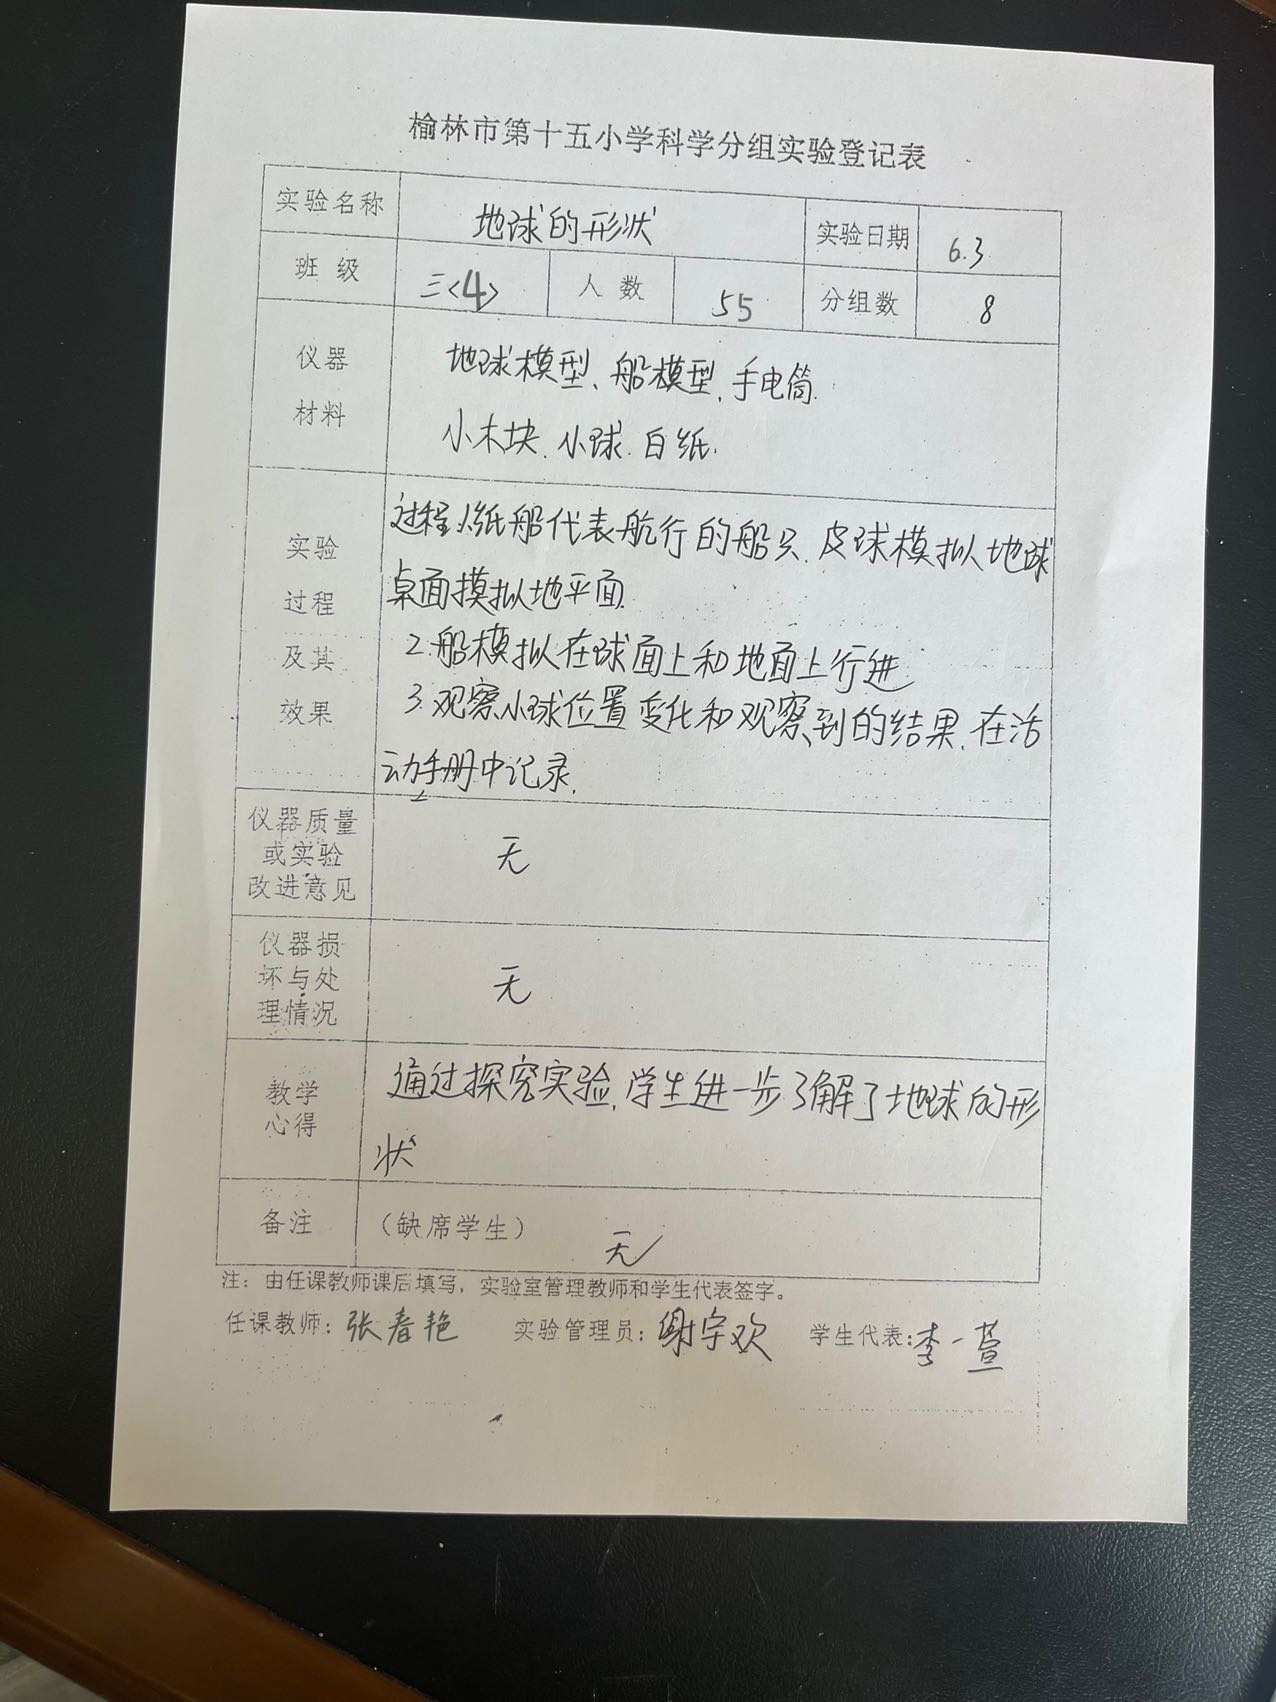 榆林市第十五小学科学分组实验登记表
实验名称 地球的形状 实验日期 6.3
班级 三<4> 人数 55 分组数 8
仪器
材料
地球模型、船模型、手电筒.
小木块、小球、白纸.
实验
过程
及其
效果
过程1.纸船代表航行的船只、皮球模拟地球
桌面摸拟地平面.
2.船模拟在球面上和地面上行进
3.观察小球位置变化和观察到的结果.在活
动手册中记录.
仪器质量
或实验
改进意见
无
仪器损
坏与处
理情况
无
教学
心得
通过探究实验,学生进一步了解了地球的形
状
备注 (缺席学生) 无
注：由任课教师课后填写，实验室管理教师和学生代表签字。
任课教师：张春艳 实验管理员：谢宇欢 学生代表：李一萱